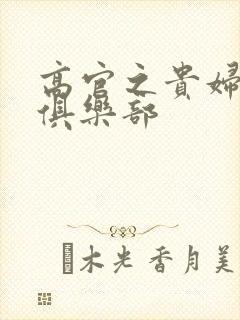 高官之貴婦
俱樂部
木光香月美